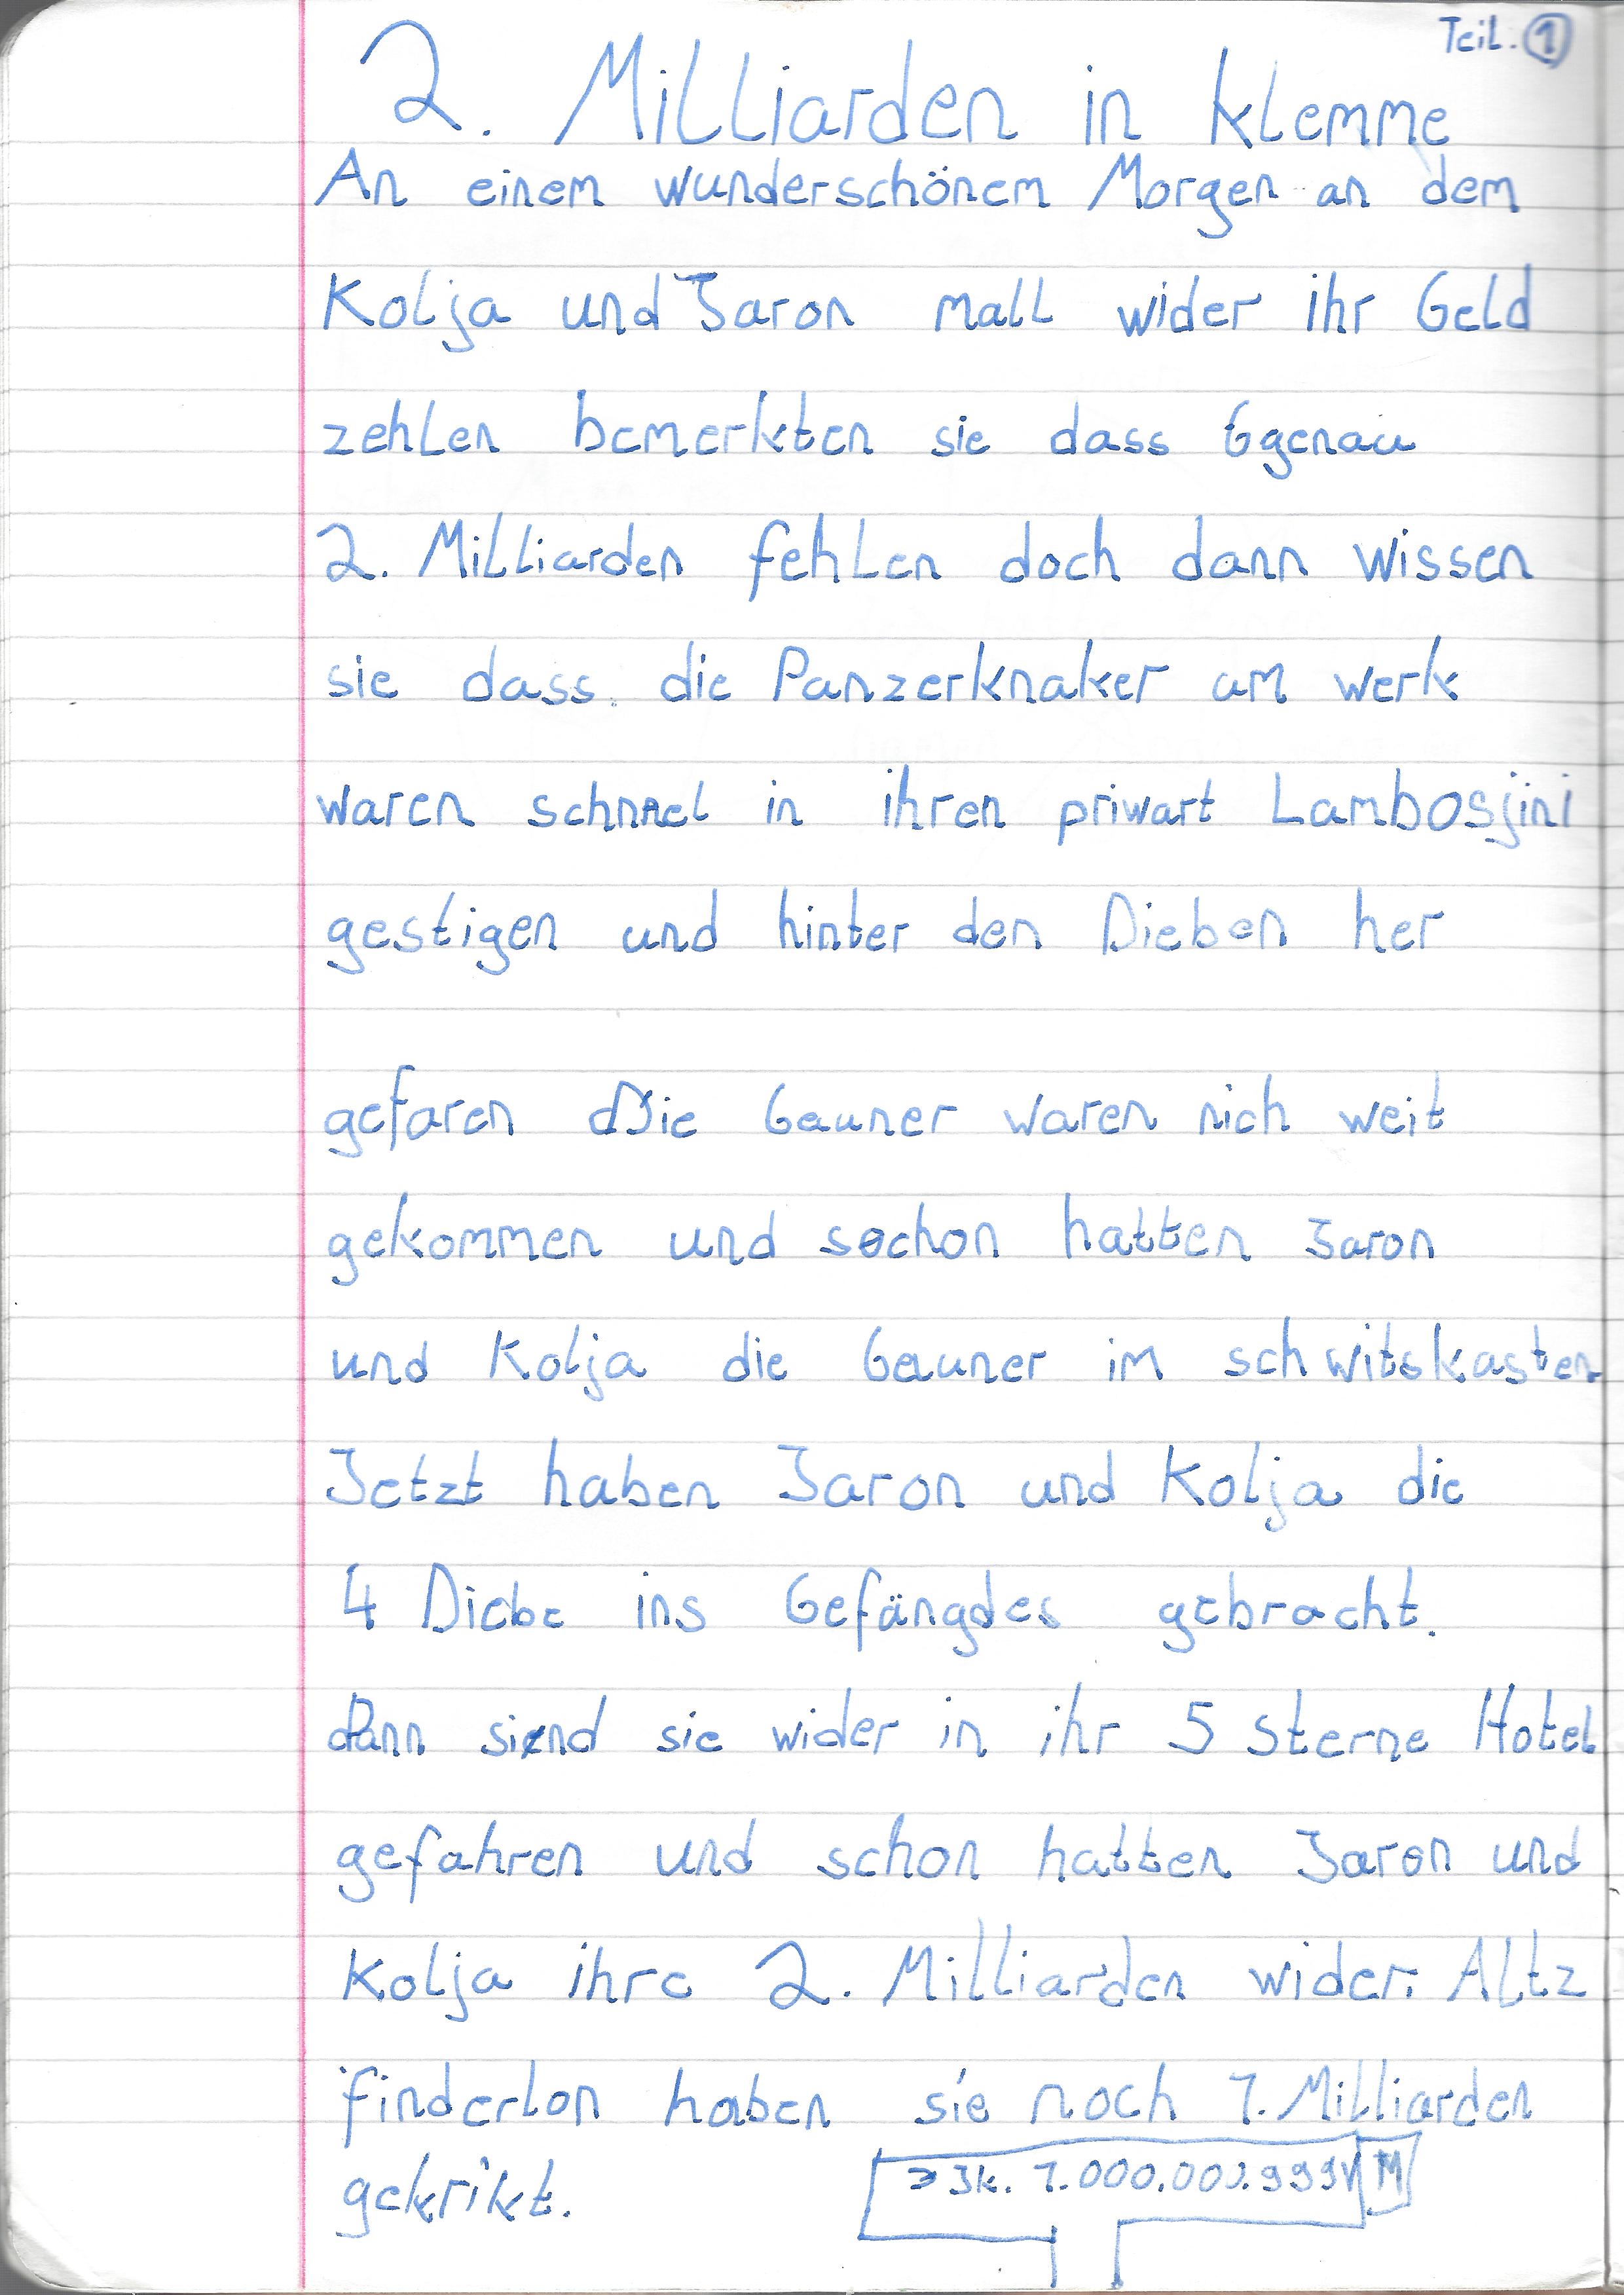 Teil. 1
2. Milliarden in klemme
An einem wunderschönem Morgen an dem
Kolja und Jaron mall wider ihr Geld
zehlen bemerkten sie dass Ggenau
2. Milliarden fehlen doch dann wissen
sie dass. die Panzerknaker am werk
waren schnnel in ihren priwart Lambosjini
gestigen und hinter den Dieben her
gefaren Die Gauner waren nich weit
gekommen und schon hatten Jaron
und Kolja die Gauner im schwitskasten
Jetzt haben Jaron und Kolja die
4 Diebe ins Gefängdes gebracht.
Dann siend sie wider in ihr 5 Sterne Hotel
gefahren und schon hatten Jaron und
Kolja ihre 2. Milliarden wider. Altz
finderlon haben sie noch 1. Milliarden
gekrikt.
JK. 1.000.002.999 M